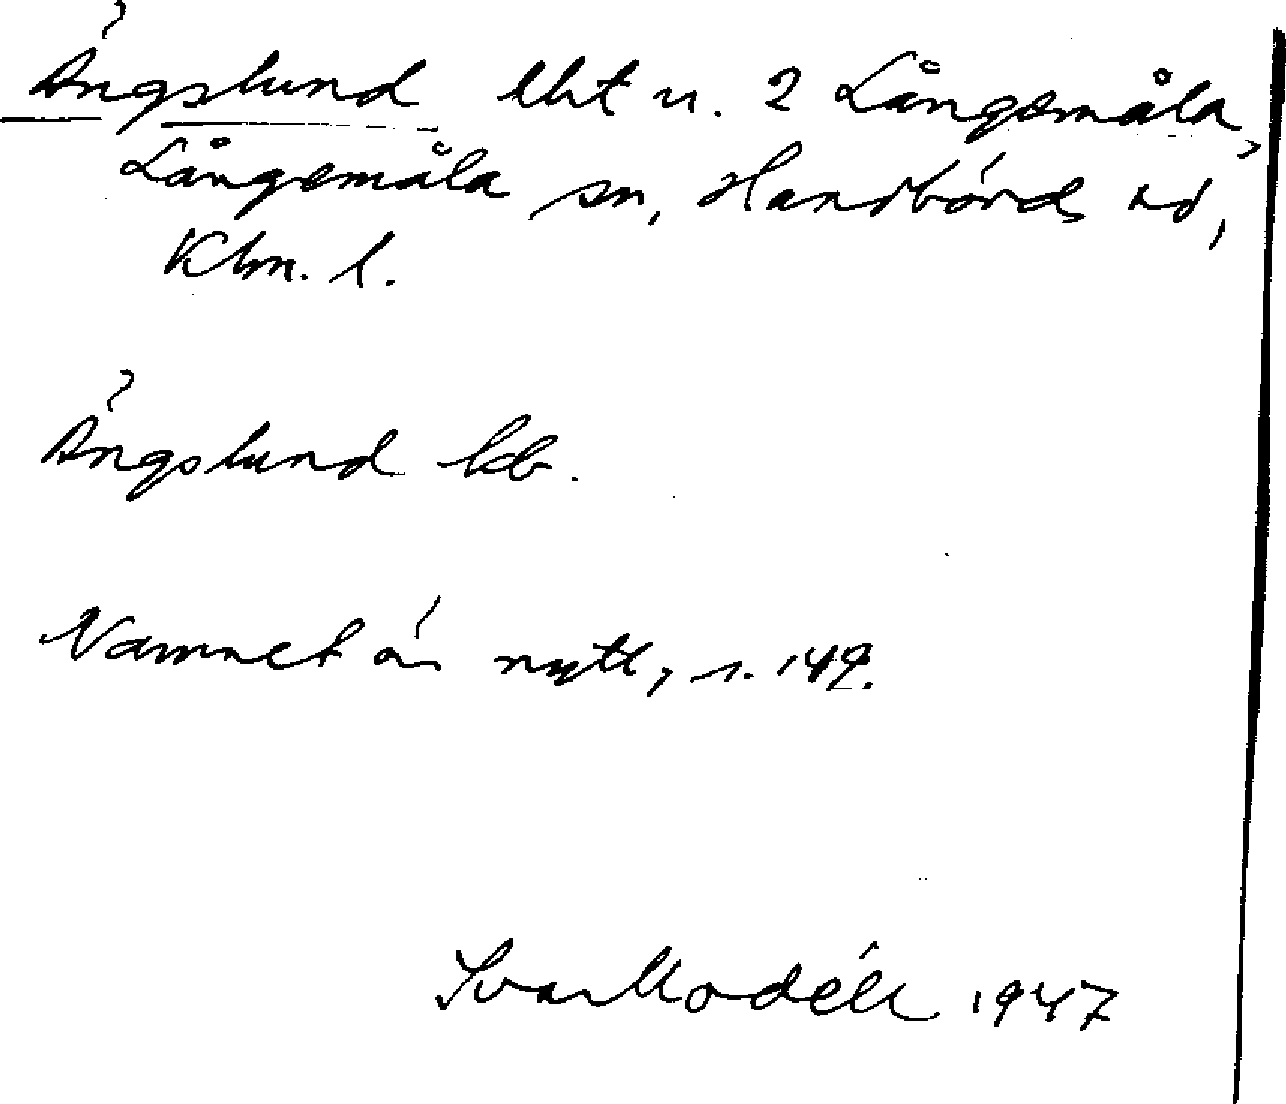 Ängslund lht u. 2 Långemåla,
Långemåla sn, Handbörds hd,
Klm. l.
Ängslund kb.
Namnet är nytt, s. 149.
Ivar Modéer 1947